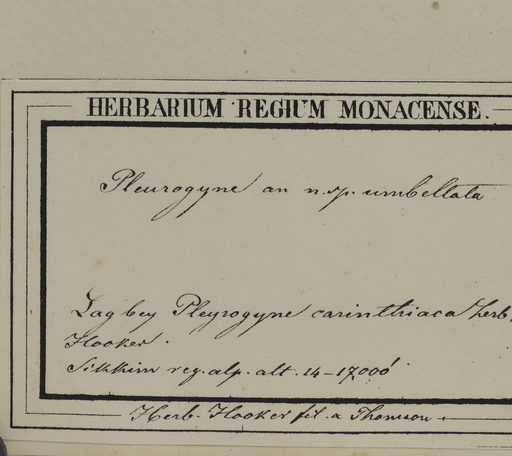 HERBARIUM REGIUM MONACENSE.
Pleurogyne an n.sp. umbellata
Lag bey Pleyrogyne carinthiaca herb.
Hooker.
Sikkim reg. alp. alt. 14-17,000'
Herb. Hooker fil. a Thomson.